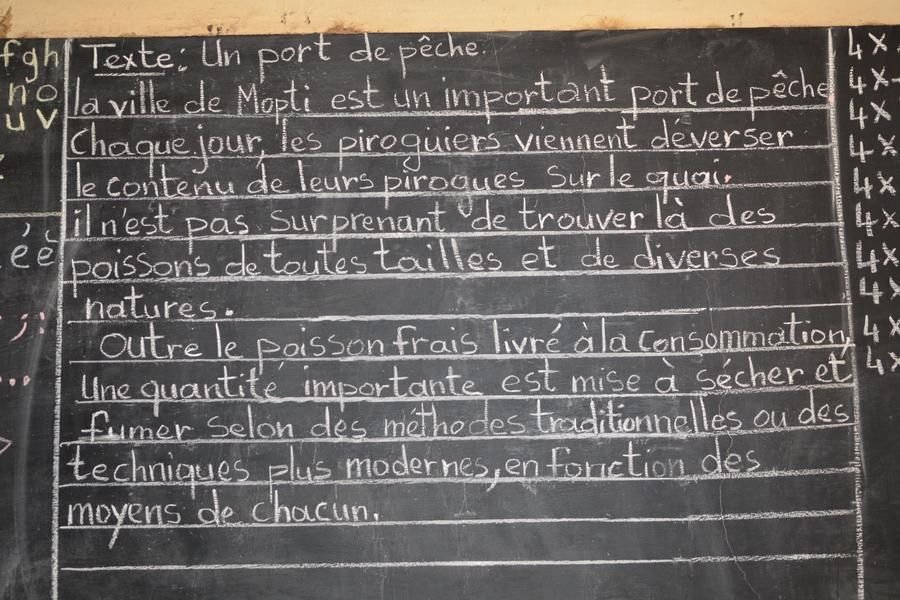 f g h
n o
u v
é è
Texte: Un port de pêche.
la ville de Mopti est un important port de pêche
Chaque jour, les piroguiers viennent déverser
le contenu de leurs pirogues sur le quai.
il n'est pas surprenant de trouver là des
poissons de toutes tailles et de diverses
natures.
Outre le poisson frais livré à la consommation,
Une quantité importante est mise à sécher et
fumer selon des méthodes traditionnelles ou des
techniques plus modernes, en fonction des
moyens de chacun.
4 x
4 x
4 x
4 x
4 x
4 x
4 x
4 x
4 x
4 x